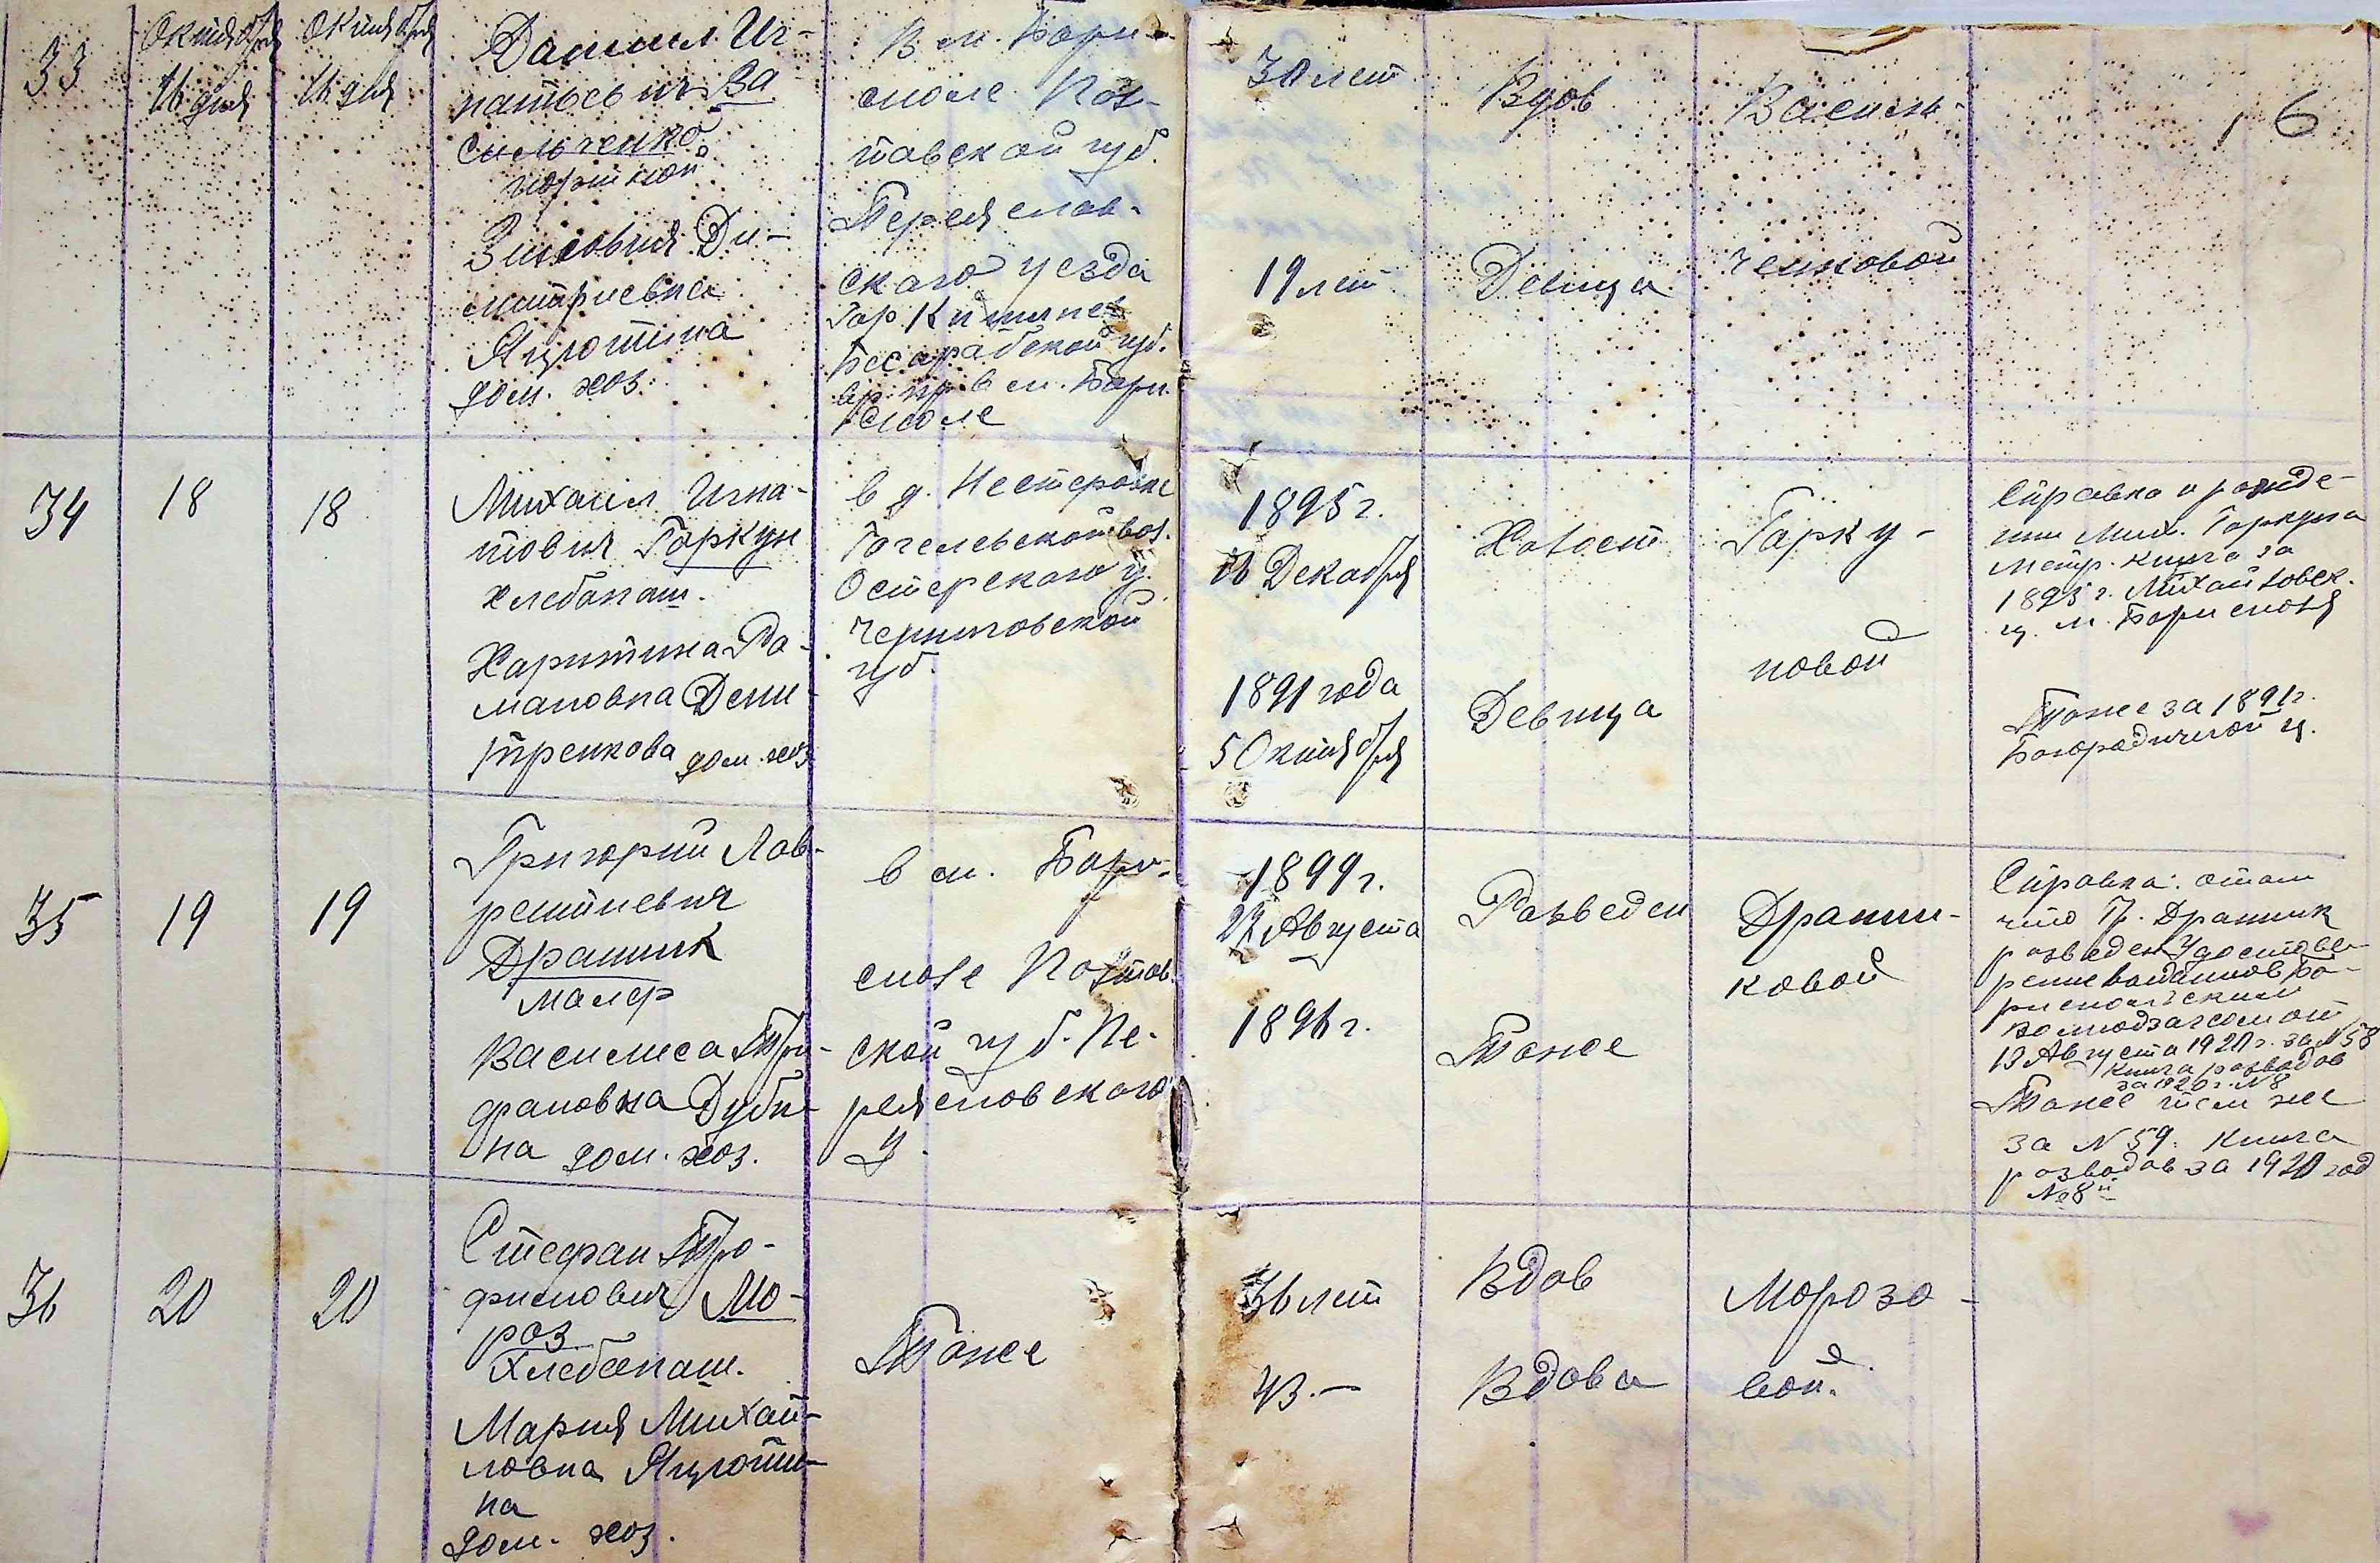 33
Октября
16 дня
Октября
16 дня
Даниил Иг-
натьевич Ва
сильченко
портной
Зиновия Ди-
митриевна
Яцютина
дом. хоз.
В м. Бори-
споле Пол-
тавской губ.
Переяслав-
ского уезда
Гор. Кишинев
Бесарабской губ.
вр. пр. в м. Бори-
споле
30 лет
19 лет
Вдов
Девица
Василь-
ченковой
6
34
18
18
Михаил Игна-
тович Горкун
хлебопаш.
Харитина Ро-
мановна Дени-
тренкова дом. хоз
в д. Нестеровке
Гогелевской вол.
Остерского у.
Черниговской
губ.
1895 г.
16 Декабря
1891 года
5 Октября
Холост
Девица
Горку-
новой
Справка о рожде-
нии Мих. Горкуна
метр. книга за
1895 г. Михайловск.
ц. м. Борисполя
Тоже за 1891 г.
Богородичной ц.
35
19
19
Григорий Лав-
рентиевич
Драник
маляр
Василиса Три-
фановна Дуби-
на дом. хоз.
в м. Бори-
споле Полтав.
ской губ. Пе-
реяславского
у.
1899 г.
22 Августа
1896 г.
Розведен
Тоже
Драни-
ковой
Справка: о том
что Г. Драник
розведен Удостове-
рение выданное Бо-
риспольским
Волподзагсом от
13 Августа 1920 г. за N 58
Книга розводов
за 1920 г. N 8
Тоже тем же
за N 59. Книга
розводов за 1920 год
№ 8й
36
20
20
Стефан Тро-
фимович Мо-
роз
Хлебопаш.
Мария Михай-
ловна Яцюти-
на
дом. хоз.
Тоже
36 лет
43. —
Вдов
Вдова
Морозо-
вой.